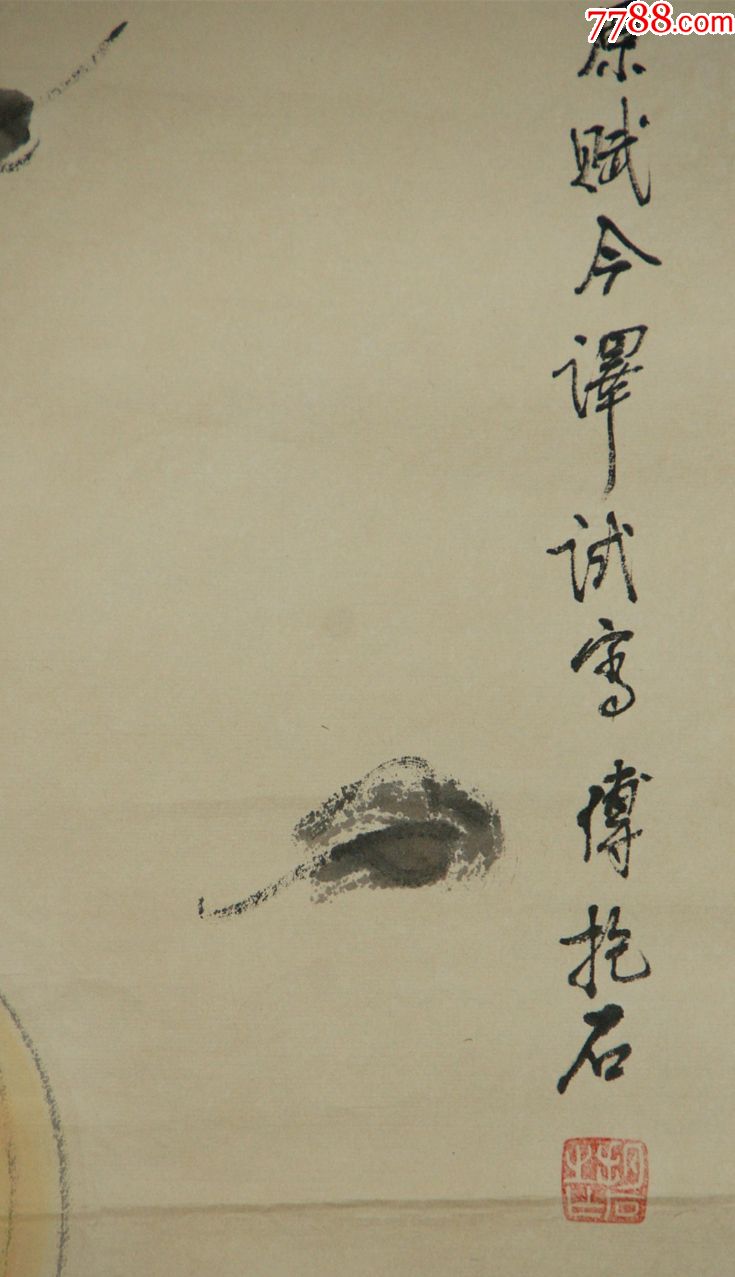 7788.com
原賦今譯试寫傅抱石